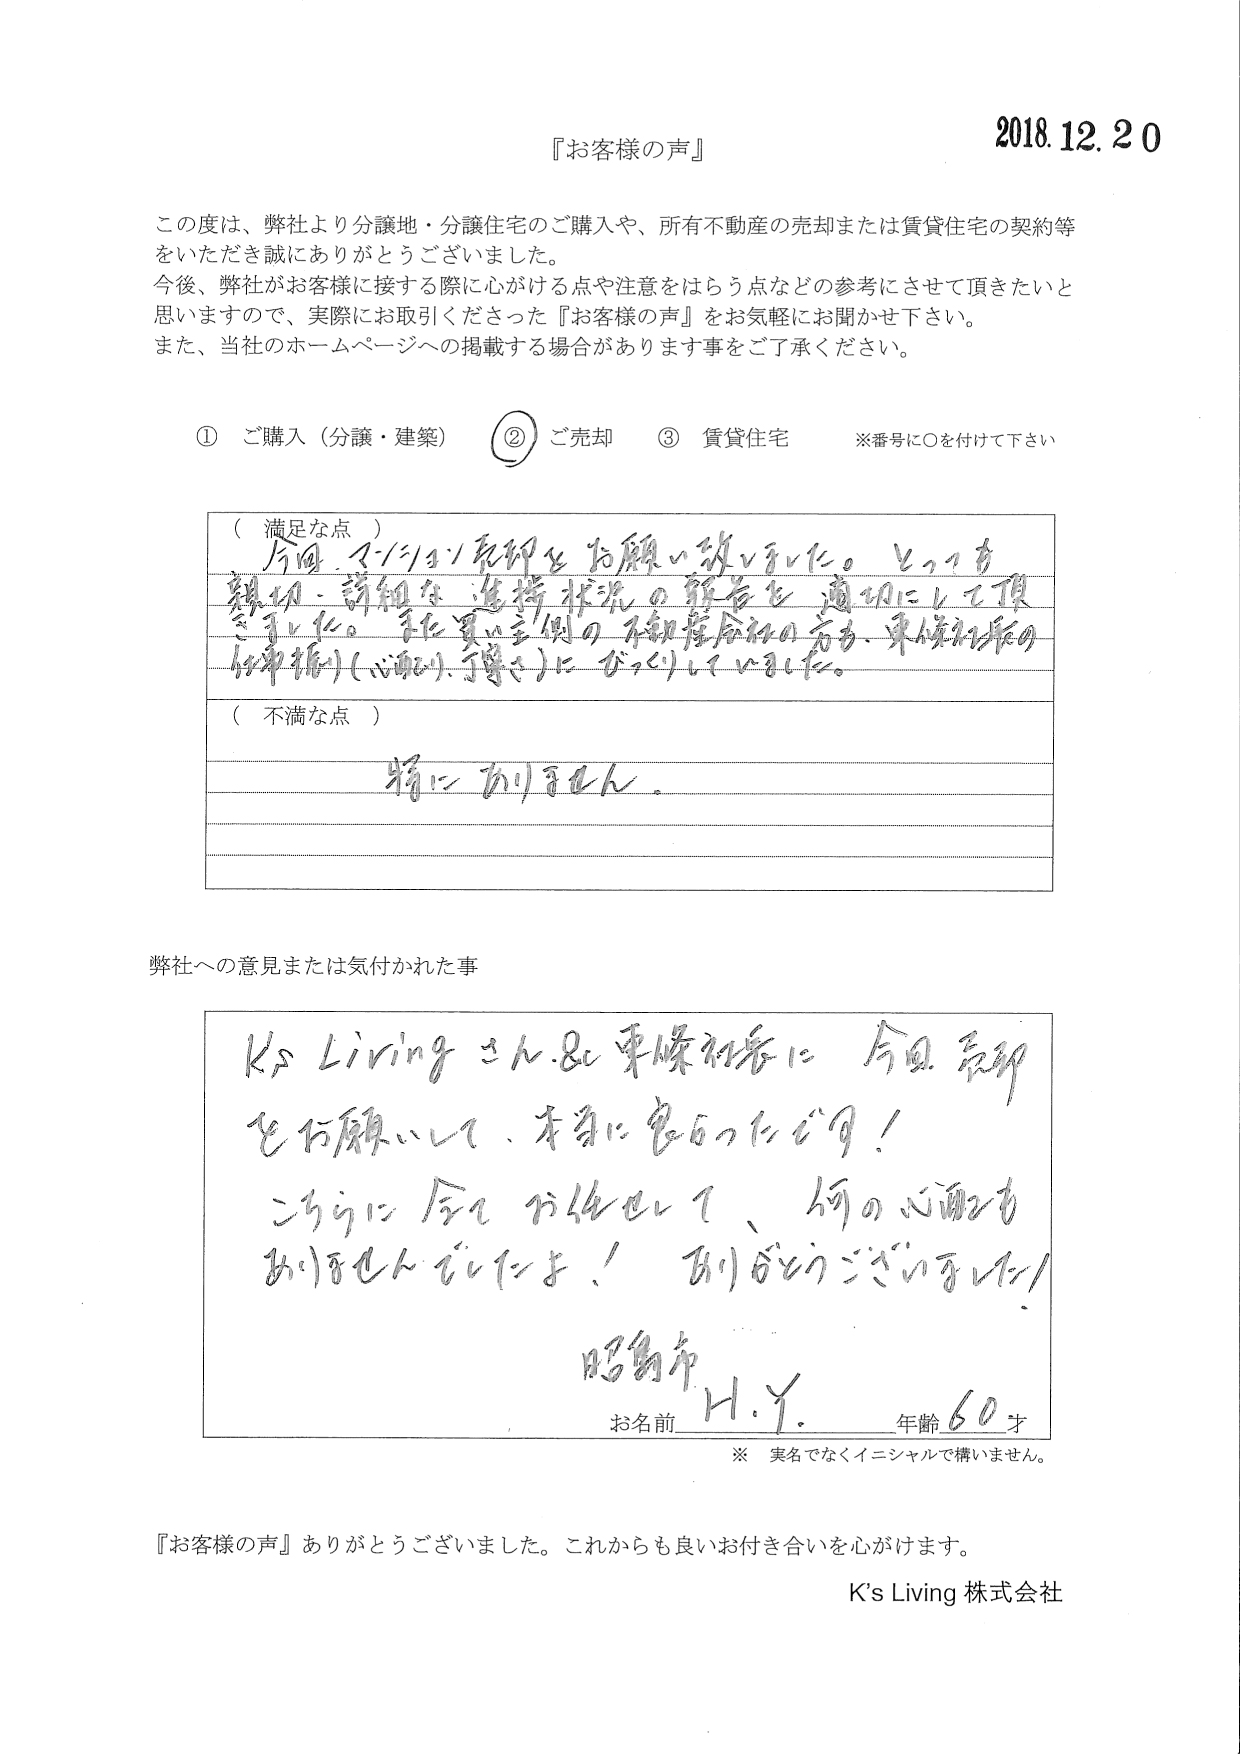 2018.12.20
『お客様の声』
この度は、弊社より分譲地・分譲住宅のご購入や、所有不動産の売却または賃貸住宅の契約等
をいただき誠にありがとうございました。
今後、弊社がお客様に接する際に心がける点や注意をはらう点などの参考にさせて頂きたいと
思いますので、実際にお取引くださった『お客様の声』をお気軽にお聞かせ下さい。
また、当社のホームページへの掲載する場合があります事をご了承ください。
① ご購入（分譲・建築） ② ご売却 ③ 賃貸住宅 ※番号に○を付けて下さい
（ 満足な点 ）
今回、マンション売却をお願い致しました。とっても
親切・詳細な進捗状況の報告を適切にして頂
きました。また買い主側の不動産会社の方も、東條社長の
仕事振り(心配り、丁寧さ)にびっくりしていました。
（ 不満な点 ）
特にありません。
弊社への意見または気付かれた事
K's Living さん & 東條社長に 今回 売却
をお願いして、本当に良かったです!
こちらに全てお任せして、何の心配も
ありませんでしたよ! ありがとうございました!
昭島市
お名前 H.Y. 年齢 60 才
※ 実名でなくイニシャルで構いません。
『お客様の声』ありがとうございました。これからも良いお付き合いを心がけます。
K's Living 株式会社